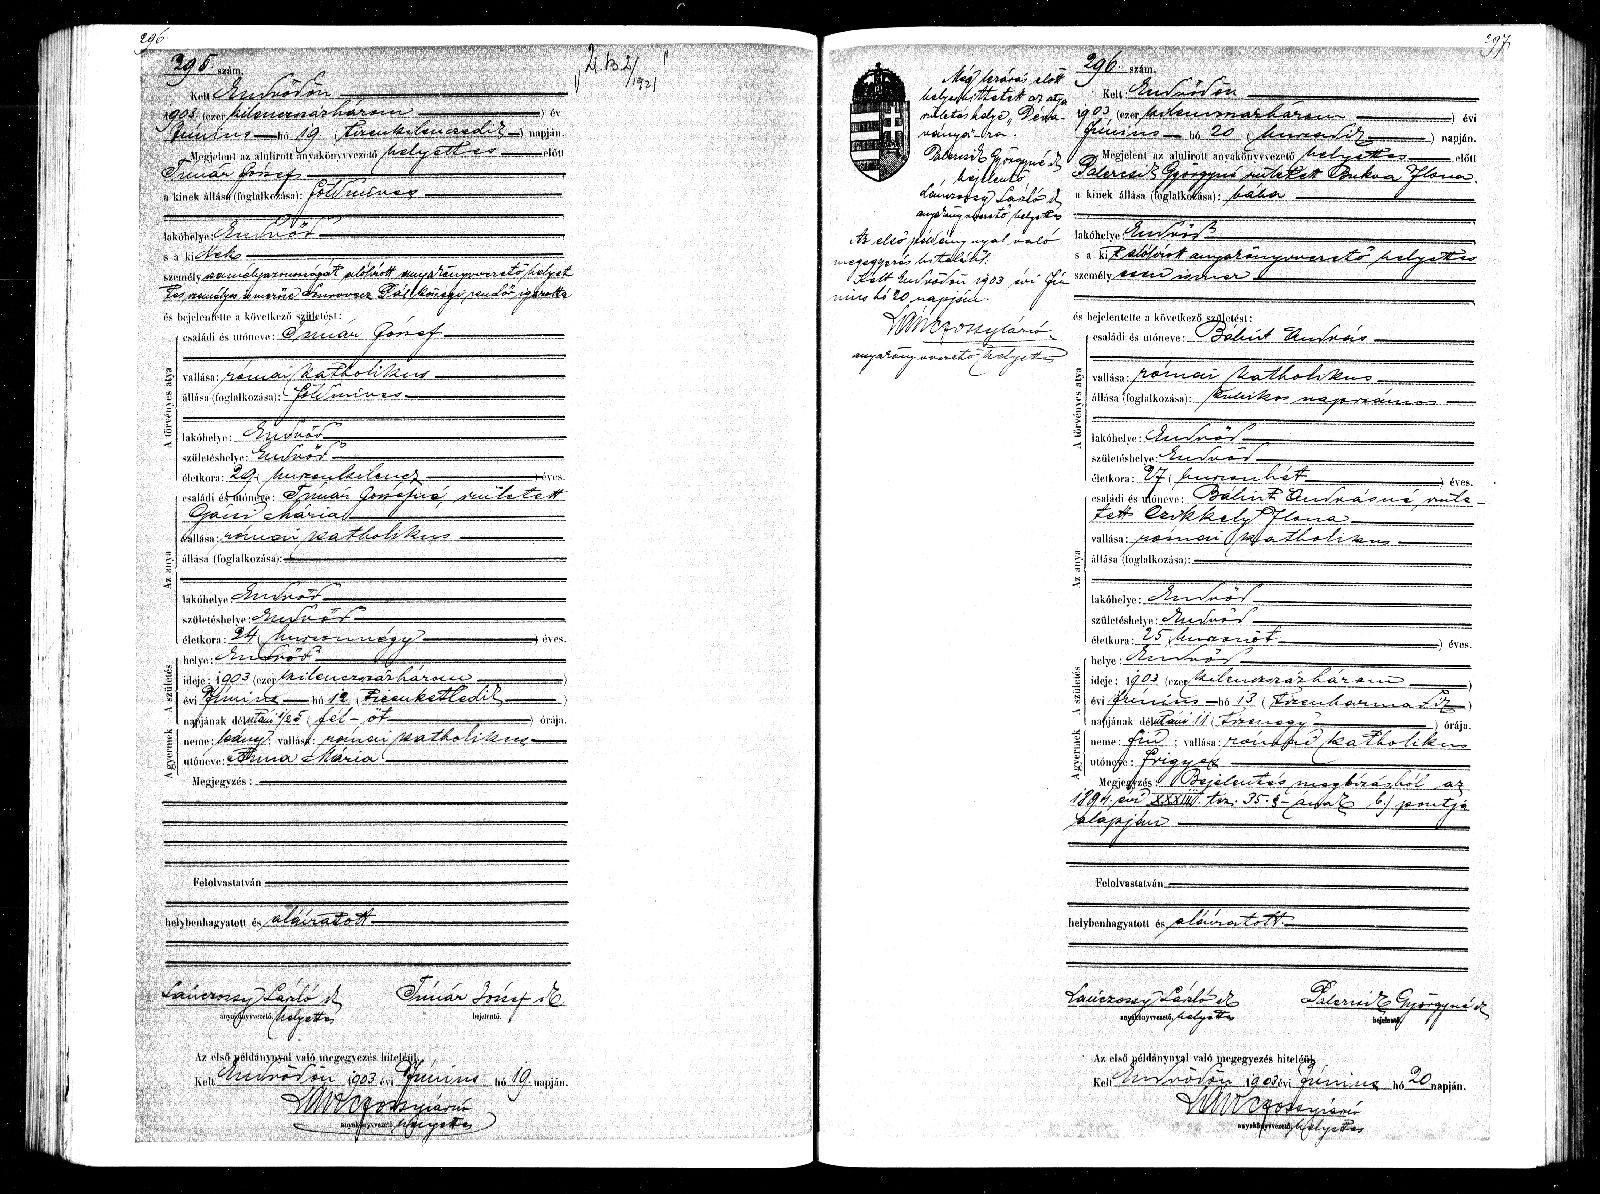 296
295 szám.
Kelt Endrődön
1903 (ezer kilenczszázhárom) év
Június hó 19 (tizenkilenczedik) napján.
Megjelent az alulirott anyakönyvvezető helyettes előtt
Tímár József
a kinek állása (foglalkozása): földmíves
lakóhelye: Endrőd
s a ki
személy személyazonosságát alólírott anyakönyvvezető helyet
Pál községi rendőr igazolta
és bejelentette a következő születést:
A törvényes atya
családi és utóneve: Tímár József
vallása: római katholikus
állása (foglalkozása): földmíves
lakóhelye: Endrőd
születéshelye: Endrőd
életkora: 29 (huszonkilencz) éves.
Az anya
családi és utóneve: Tímár Józsefné született
Mária
vallása: római katholikus
állása (foglalkozása):
lakóhelye: Endrőd
születéshelye: Endrőd
életkora: 24 (huszonnégy) éves.
A születés
helye: Endrőd
ideje: 1903 (ezer kilenczszázhárom
évi Június hó 12 (tizenkettedik)
napjának délutáni 1/25 (fél-öt) órája.
A gyermek
neme: leány; vallása: római katholikus
utóneve: Anna Mária
Megjegyzés:
Felolvastatván
helybenhagyatott és aláíratott
Lánczossy László sk Tímár József sk
anyakönyvvezető, helyettes bejelentő.
Az első példánynyal való megegyezés hiteléül.
Kelt Endrődön 1903 évi Június hó 19 napján.
anyakönyvvezető, helyettes
1921
297
Még beírás előtt
helyesbíttetett az atya
születéshelye, Déva-
ványára.
Palercsik Györgyné sk
bejelentő
Lánczossy László sk
anyakönyvvezető helyettes
Az első példánynyal való
megegyezés hiteléül.
Kelt Endrődön 1903 évi Jú-
nius hó 20 napján.
anyakönyvvezető helyettes
296 szám.
Kelt Endrődön
1903 (ezer kilenczszázhárom) évi
Június hó 20 (huszadik) napján.
Megjelent az alulirott anyakönyvvezető helyettes előtt
Palercsik Györgyné született Ilona
a kinek állása (foglalkozása): bába
lakóhelye: Endrőd
s a kit alólírott anyakönyvvezető helyettes
személyesen ismer
és bejelentette a következő születést:
A törvényes atya
családi és utóneve: Bálint András
vallása: római katholikus
állása (foglalkozása): kubikos napszámos
lakóhelye: Endrőd
születéshelye: Endrőd
életkora: 27 (huszonhét) éves.
Az anya
családi és utóneve: Bálint Andrásné szüle-
tett Czikkely Ilona
vallása: római katholikus
állása (foglalkozása):
lakóhelye: Endrőd
születéshelye: Endrőd
életkora: 25 (huszonöt) éves.
A születés
helye: Endrőd
ideje: 1903 (ezer kilenczszázhárom)
évi Június hó 13 (tizenharmadik)
napjának délutáni 11 (tizenegy) órája.
A gyermek
neme: fiú; vallása: római katholikus
utóneve: Frigyes
Megjegyzés: Bejelentés megbízásból az
1894 évi XXXIII. tcz. 35.§-ának b.) pontja
alapján
Felolvastatván
helybenhagyatott és aláíratott
Lánczossy László sk Palercsik Györgyné sk
anyakönyvvezető, helyettes bejelentő.
Az első példánynyal való megegyezés hiteléül.
Kelt Endrődön 1903 évi Június hó 20 napján.
anyakönyvvezető, helyettes